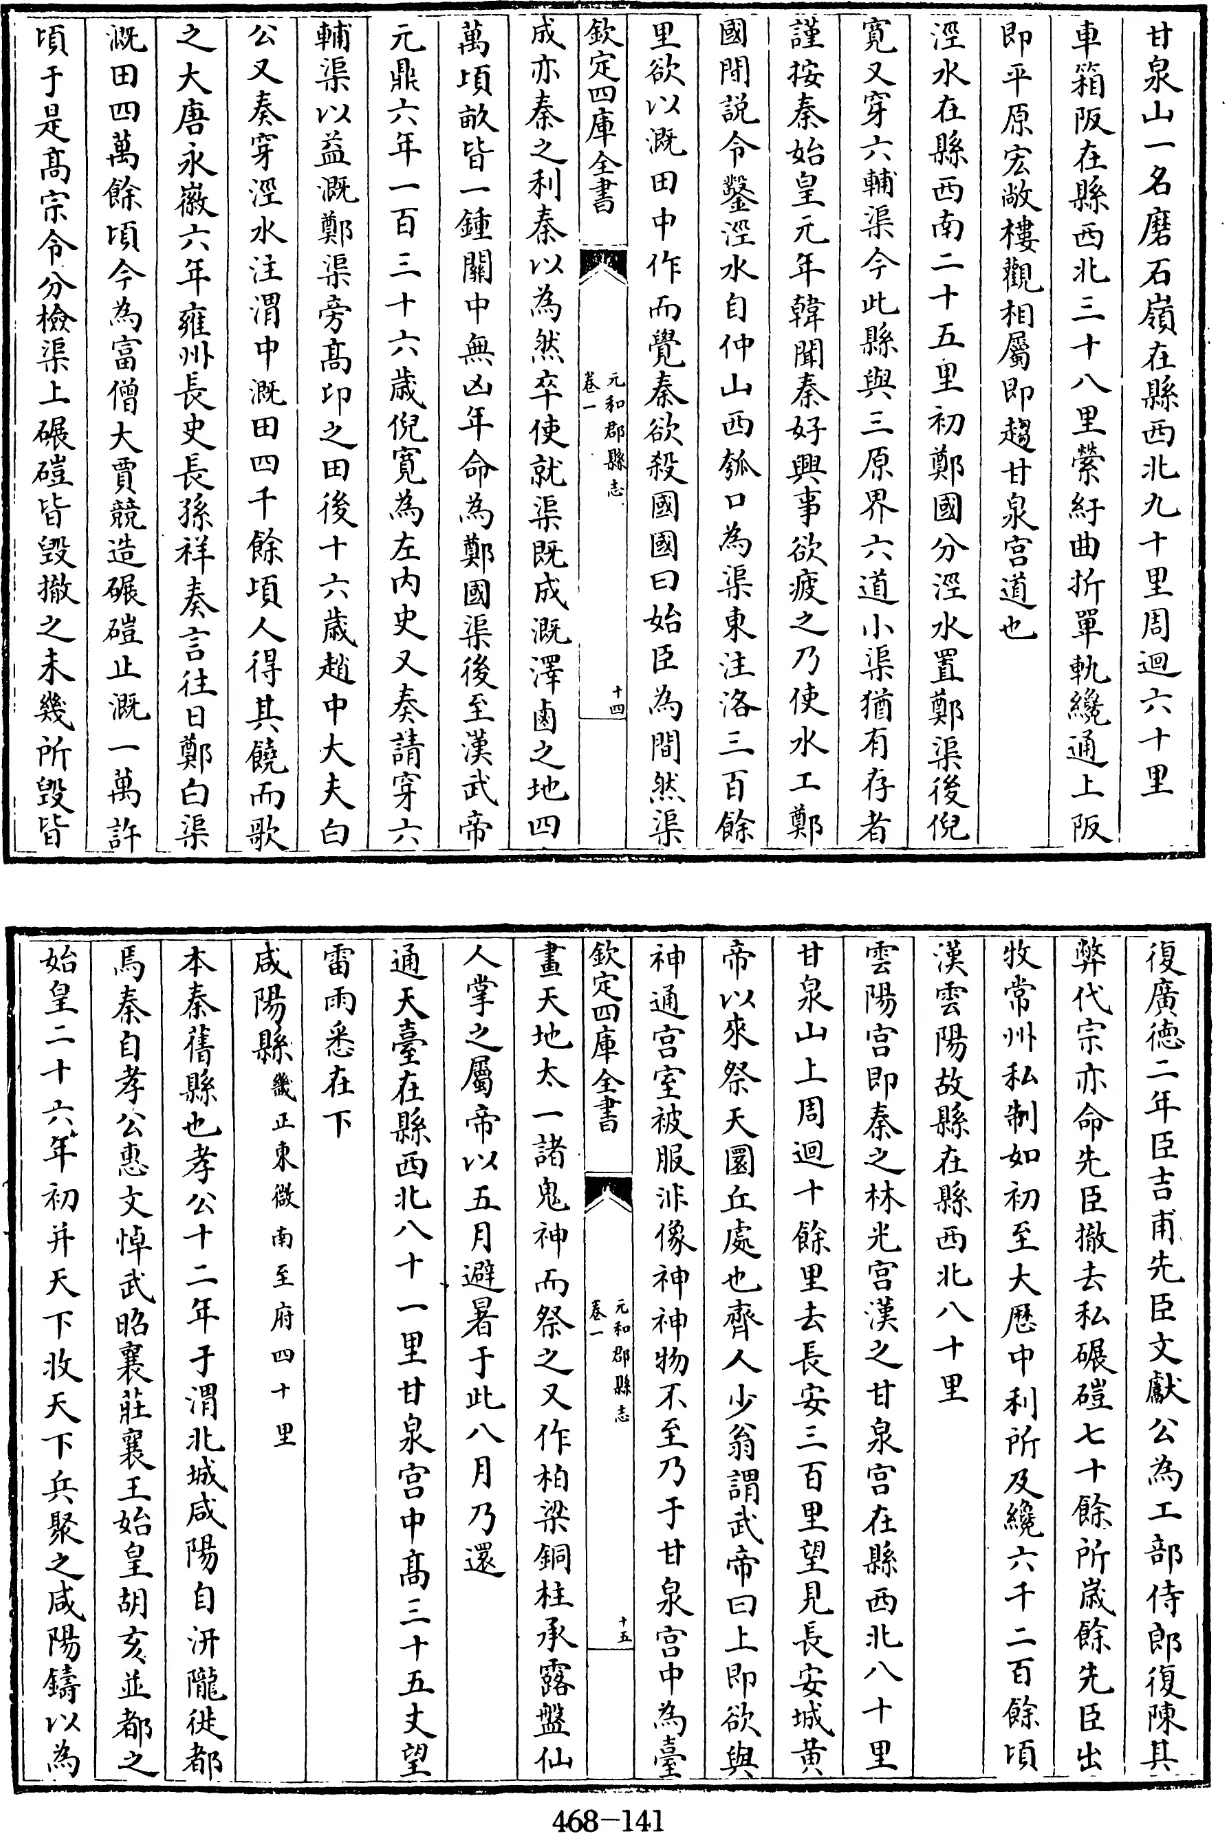 甘泉山一名磨石嶺在縣西北九十里周迴六十里
車箱阪在縣西北三十八里縈紆曲折單軌纔通上阪
即平原宏敞樓觀相屬即趨甘泉宫道也
涇水在縣西南二十五里初鄭國分涇水置鄭渠後倪
寛又穿六輔渠今此縣與三原界六道小渠猶有存者
謹按秦始皇元年韓聞秦好興事欲疲之乃使水工鄭
國間説令鑿涇水自仲山西瓠口為渠東注洛三百餘
里欲以溉田中作而覺秦欲殺國國曰始臣為間然渠
欽定四庫全書
元和郡縣志
卷一
十四
成亦秦之利秦以為然卒使就渠既成溉澤鹵之地四
萬頃畝皆一鍾關中無凶年命為鄭國渠後至漢武帝
元鼎六年一百三十六歳倪寛為左内史又奏請穿六
輔渠以益溉鄭渠旁髙卬之田後十六歳趙中大夫白
公又奏穿涇水注渭中溉田四千餘頃人得其饒而歌
之大唐永徽六年雍州長史長孫祥奏言往日鄭白渠
溉田四萬餘頃今為富僧大賈競造碾磑止溉一萬許
頃于是髙宗令分檢渠上碾磑皆毁撤之未幾所毁皆
復廣德二年臣吉甫先臣文獻公為工部侍郎復陳其
弊代宗亦命先臣撤去私碾磑七十餘所歲餘先臣出
牧常州私制如初至大厯中利所及纔六千二百餘頃
漢雲陽故縣在縣西北八十里
雲陽宫即秦之林光宫漢之甘泉宫在縣西北八十里
甘泉山上周迴十餘里去長安三百里望見長安城黄
帝以來祭天圜丘處也齊人少翁謂武帝曰上即欲與
神通宫室被服非像神神物不至乃于甘泉宫中為臺
欽定四庫全書
元和郡縣志
卷一
十五
畫天地太一諸鬼神而祭之又作柏梁銅柱承露盤仙
人掌之屬帝以五月避暑于此八月乃還
通天臺在縣西北八十一里甘泉宫中髙三十五丈望
雷雨悉在下
咸陽縣畿正東微南至府四十里
本秦舊縣也孝公十二年于渭北城咸陽自汧隴徙都
焉秦自孝公惠文悼武昭襄莊襄王始皇胡亥並都之
始皇二十六年初并天下收天下兵聚之咸陽鑄以為
468-141